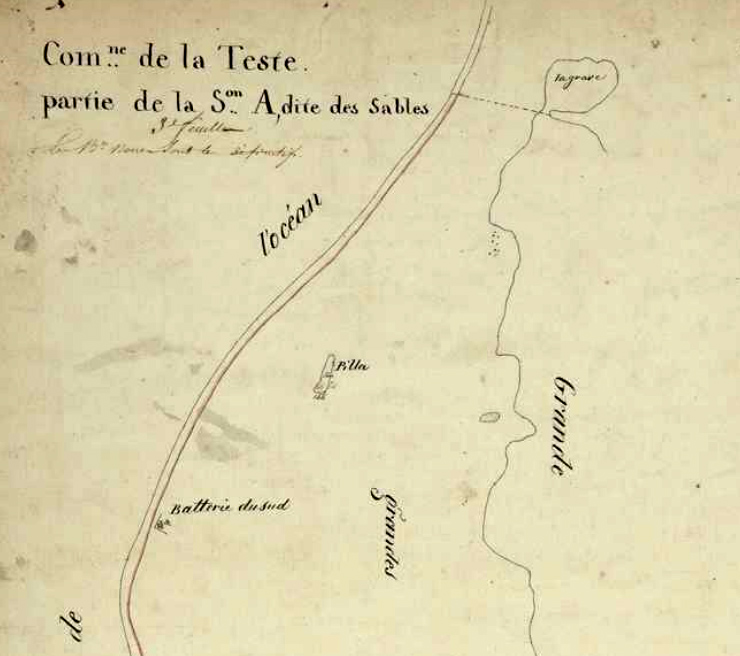 Com.ne de la Teste.
partie de la S.on A, dite des Sables
3e feuille
lagrave
l'océan
Pilla
Grande
Batterie du sud
grandes
de